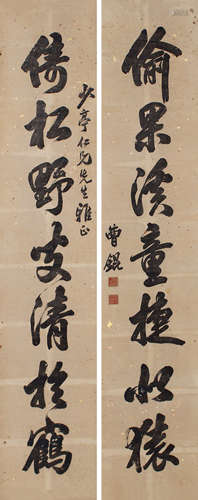 偷果溪童捷似猿
曹錕
少亭仁兄先生雅正
倚松野叟清於鶴